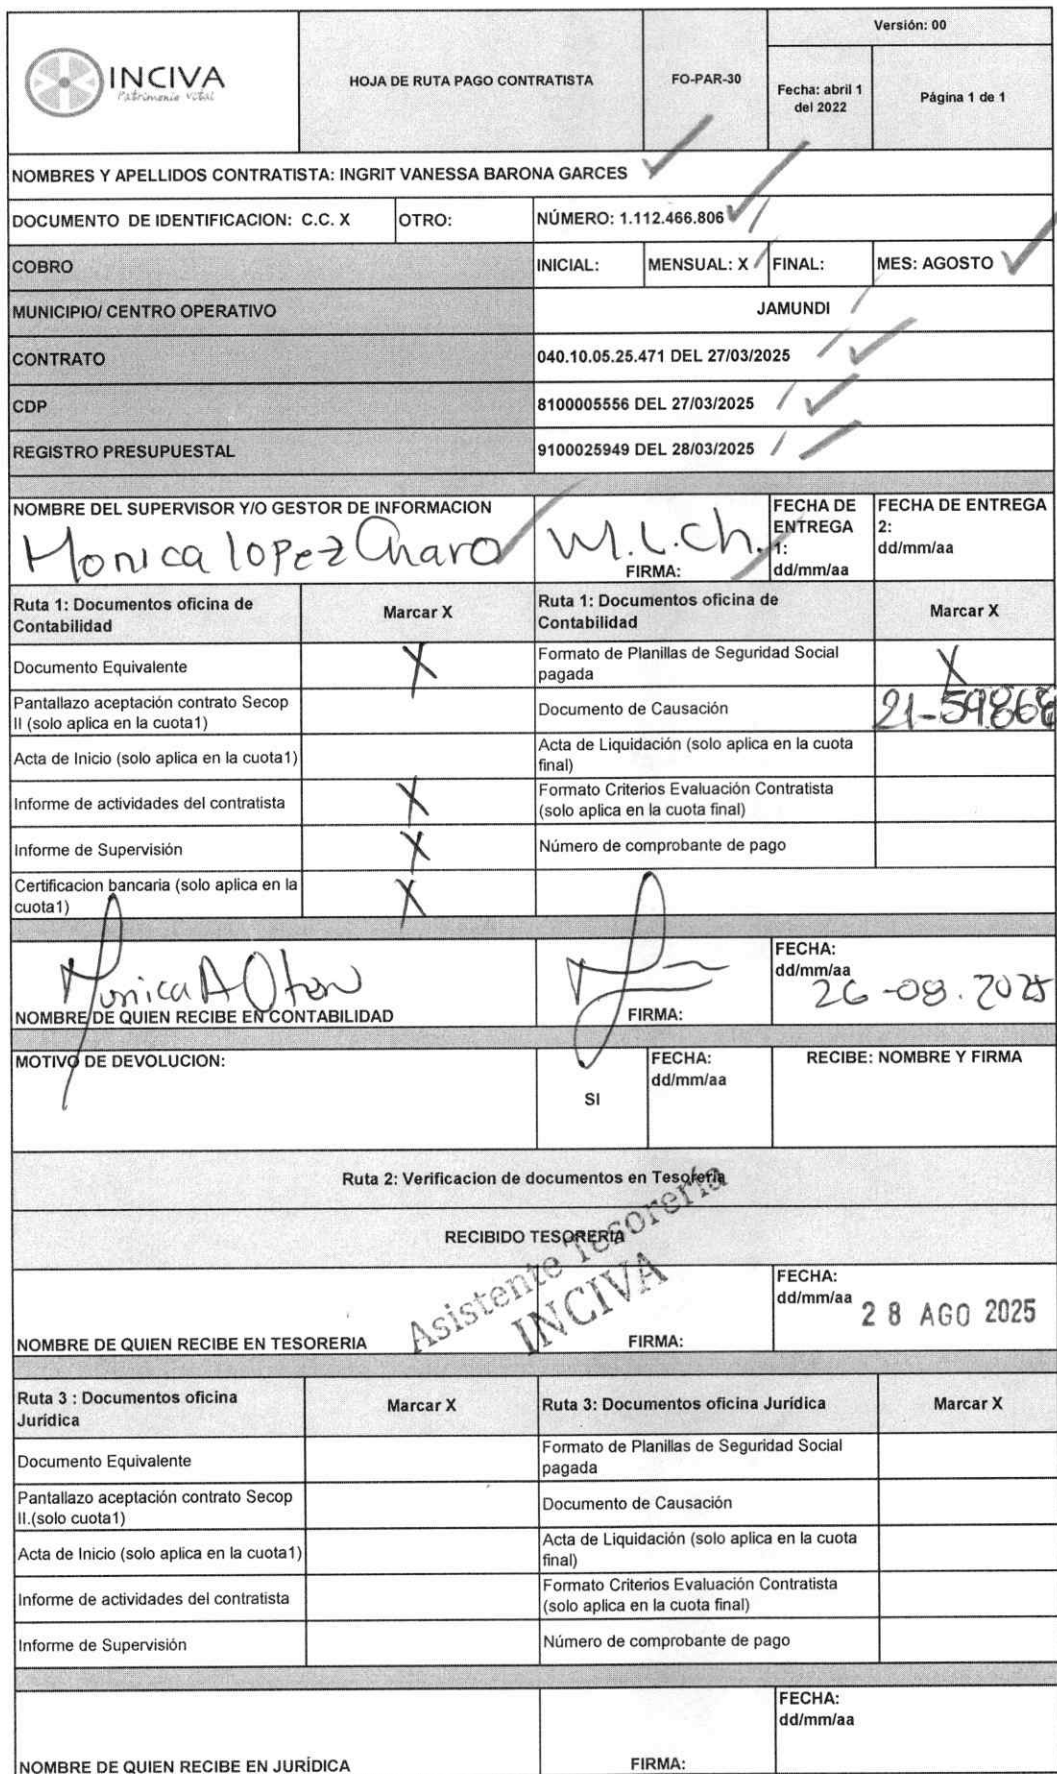 INCIVA
Patrimonio vital
HOJA DE RUTA PAGO CONTRATISTA
FO-PAR-30
Versión: 00
Fecha: abril 1
del 2022
Página 1 de 1
NOMBRES Y APELLIDOS CONTRATISTA: INGRIT VANESSA BARONA GARCES
DOCUMENTO DE IDENTIFICACION: C.C. X
OTRO:
NÚMERO: 1.112.466.806
COBRO
INICIAL:
MENSUAL: X
FINAL:
MES: AGOSTO
MUNICIPIO/ CENTRO OPERATIVO
JAMUNDI
CONTRATO
040.10.05.25.471 DEL 27/03/2025
CDP
8100005556 DEL 27/03/2025
REGISTRO PRESUPUESTAL
9100025949 DEL 28/03/2025
NOMBRE DEL SUPERVISOR Y/O GESTOR DE INFORMACION
Monica lopez Charo
M.L.Ch.
FIRMA:
FECHA DE
ENTREGA
1:
dd/mm/aa
FECHA DE ENTREGA
2:
dd/mm/aa
Ruta 1: Documentos oficina de
Contabilidad
Marcar X
Ruta 1: Documentos oficina de
Contabilidad
Marcar X
Documento Equivalente
X
Formato de Planillas de Seguridad Social
pagada
X
Pantallazo aceptación contrato Secop
II (solo aplica en la cuota1)
Documento de Causación
21-59868
Acta de Inicio (solo aplica en la cuota1)
Acta de Liquidación (solo aplica en la cuota
final)
Informe de actividades del contratista
X
Formato Criterios Evaluación Contratista
(solo aplica en la cuota final)
Informe de Supervisión
X
Número de comprobante de pago
Certificacion bancaria (solo aplica en la
cuota1)
X
Monica A Oton
NOMBRE DE QUIEN RECIBE EN CONTABILIDAD
FIRMA:
FECHA:
dd/mm/aa
26-08.2025
MOTIVO DE DEVOLUCION:
SI
FECHA:
dd/mm/aa
RECIBE: NOMBRE Y FIRMA
Ruta 2: Verificacion de documentos en Tesoreria
RECIBIDO TESORERIA
Asistente Tesorería
INCIVA
NOMBRE DE QUIEN RECIBE EN TESORERIA
FIRMA:
FECHA:
dd/mm/aa
28 AGO 2025
Ruta 3 : Documentos oficina
Jurídica
Marcar X
Ruta 3: Documentos oficina Jurídica
Marcar X
Documento Equivalente
Formato de Planillas de Seguridad Social
pagada
Pantallazo aceptación contrato Secop
II.(solo cuota1)
Documento de Causación
Acta de Inicio (solo aplica en la cuota1)
Acta de Liquidación (solo aplica en la cuota
final)
Informe de actividades del contratista
Formato Criterios Evaluación Contratista
(solo aplica en la cuota final)
Informe de Supervisión
Número de comprobante de pago
NOMBRE DE QUIEN RECIBE EN JURÍDICA
FIRMA:
FECHA:
dd/mm/aa